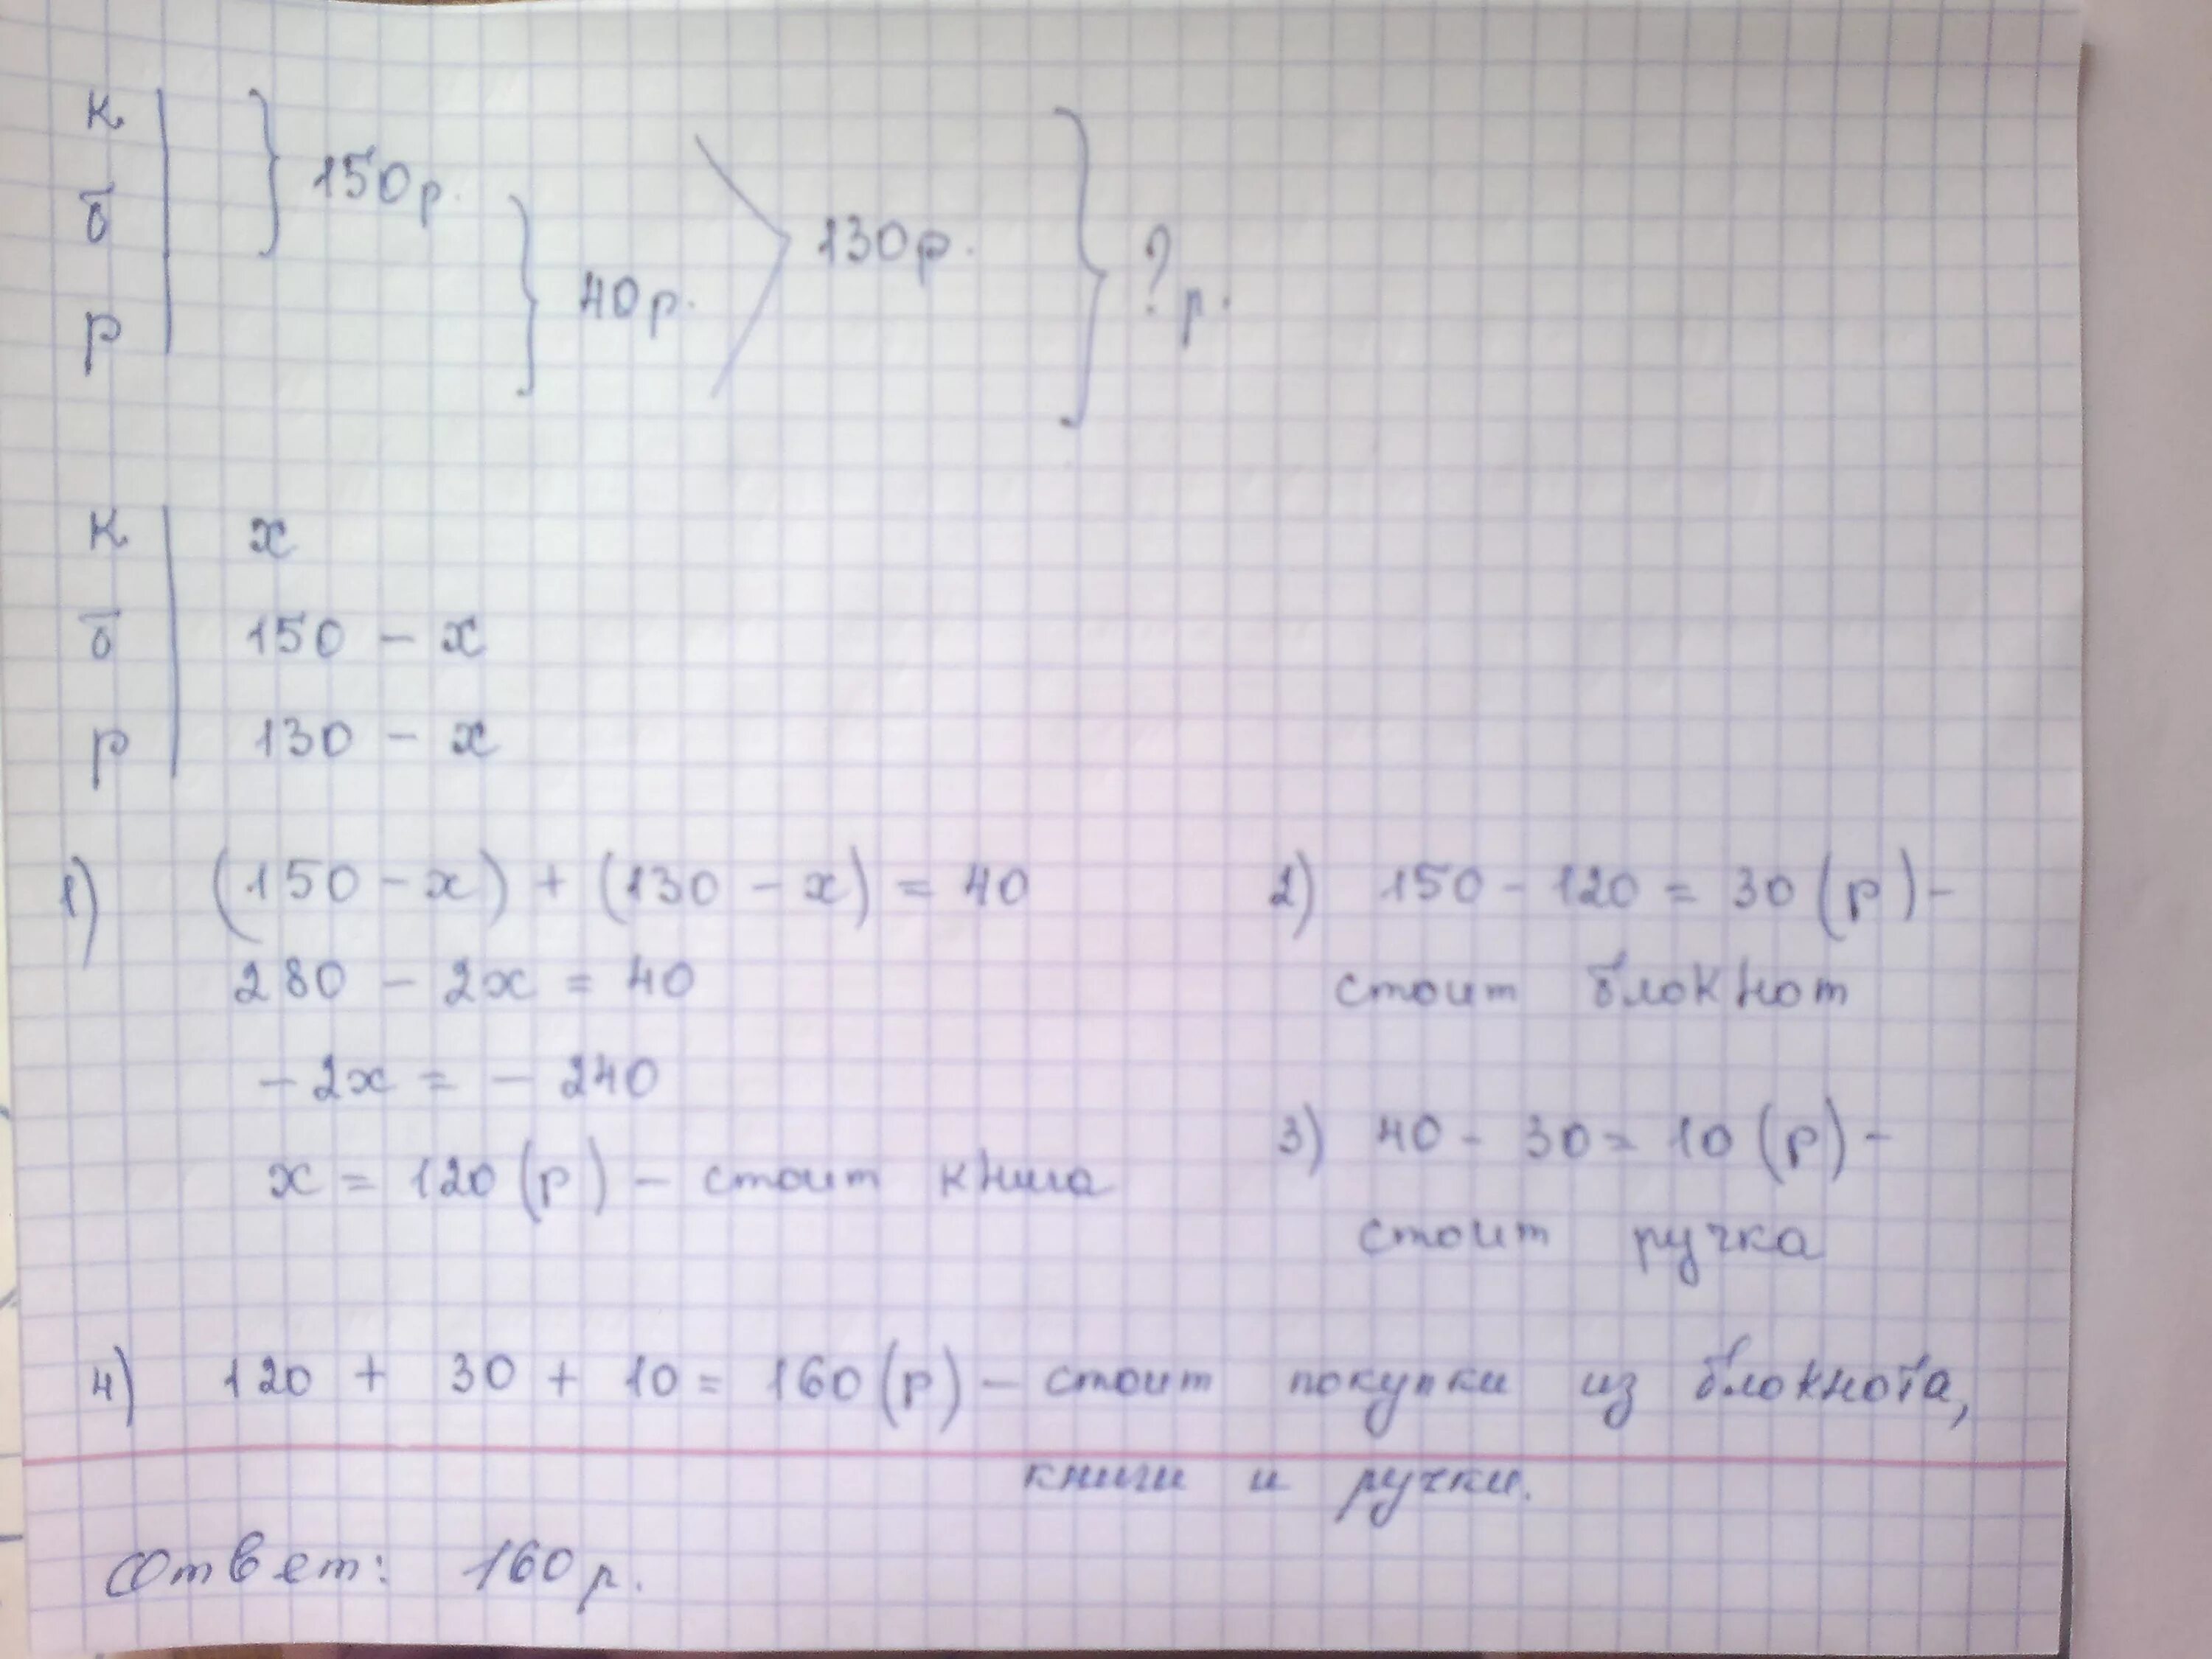 к
150р.
б
130р.
40р.
?р.
р
к x
б 150 - x
р 130 - x
1) (150 - x) + (130 - x) = 40
280 - 2x = 40
- 2x = - 240
x = 120 (р) - стоит книга
2) 150 - 120 = 30 (р) -
стоит блокнот
3) 40 - 30 = 10 (р) -
стоит ручка
4) 120 + 30 + 10 = 160 (р) - стоит покупки из блокнота,
книги и ручки.
Ответ: 160 р.